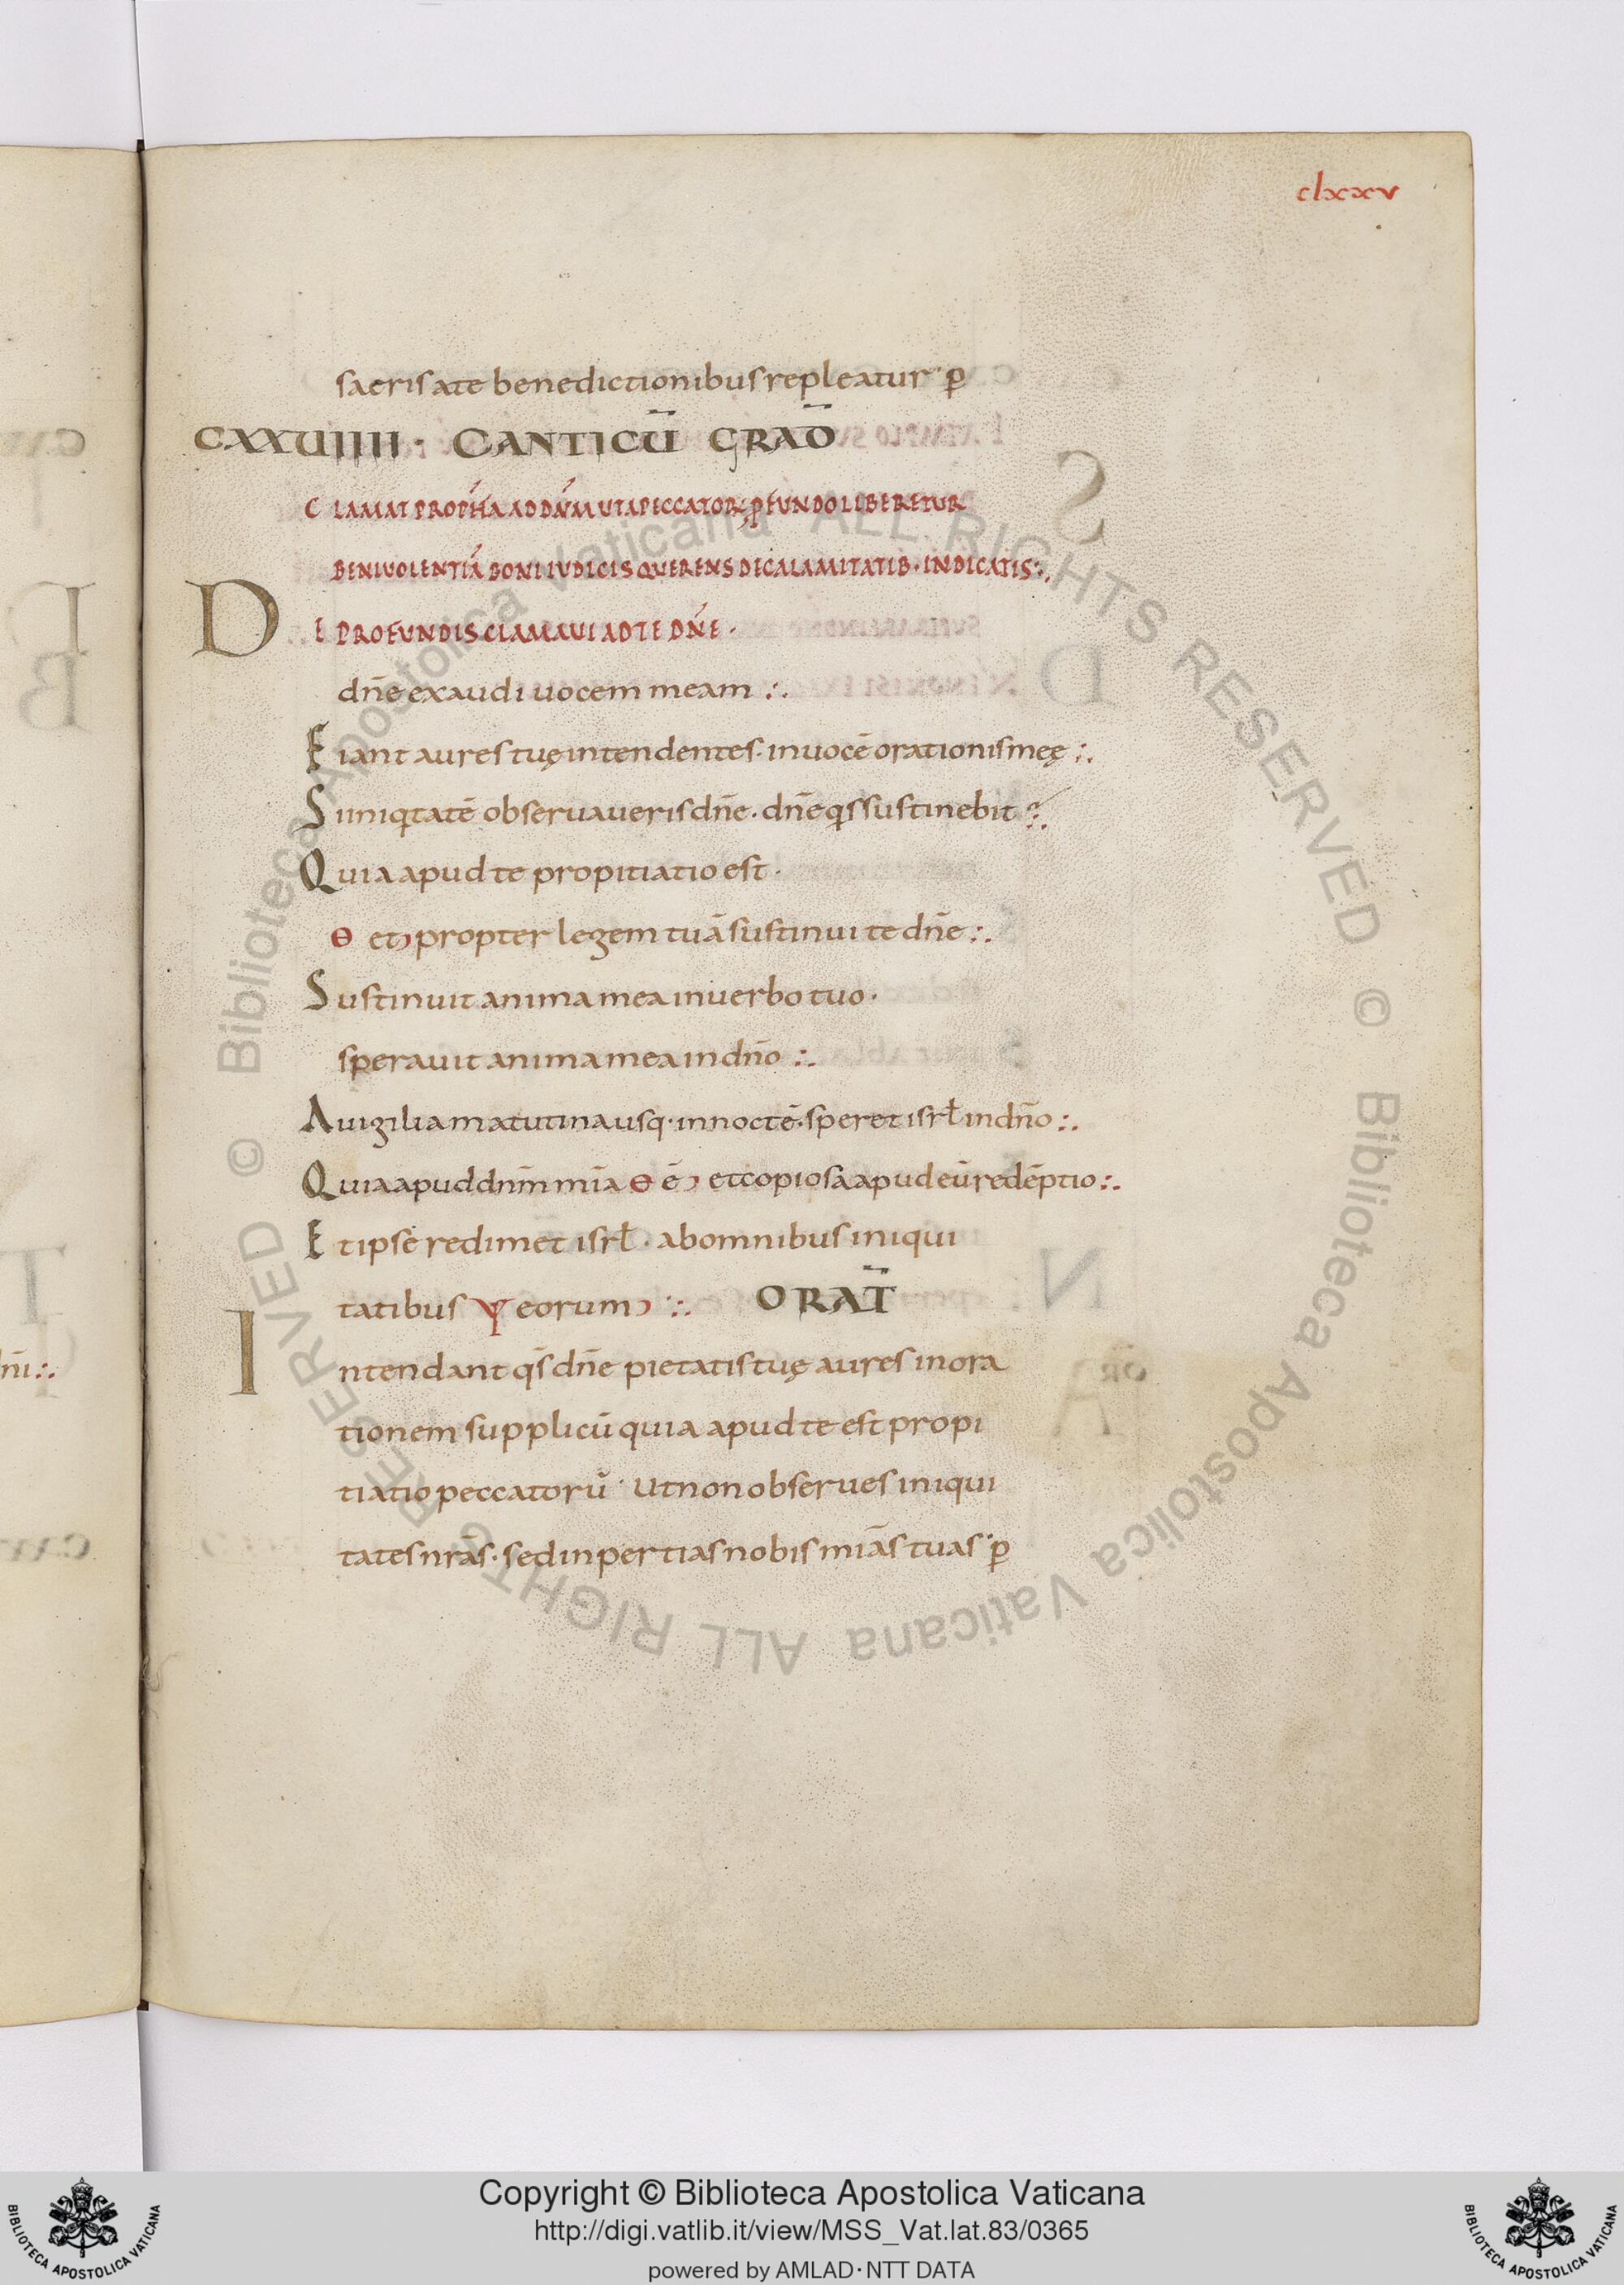 clxxxv
sacris a te benedictionibus repleatur · ꝑ
CXXUIIII · CANTICŪ GRAD̄
CLAMAT PROPH́A AD DŃM UT A PECCATOR; ꝓFUNDO LIBERETUR
BENIUOLENTIÁ BONI IUDICIS QUERENS DE CALAMITATIB · INDICATIS :.
DE PROFUNDIS CLAMAUI AD TE DŃE ·
dn̄e exaudi uocem meam :.
Fiant aures tuę intendentes · in uocē orationis meę :.
Si iniqtatē obseruaueris dn̄e · dn̄e qs sustinebit :.
Quia apud te propitiatio est ·
θ et) propter legem tuā sustinui te dn̄e :.
Sustinuit anima mea in uerbo tuo ·
sperauit anima mea in dn̄o :.
A uigilia matutina usq · in noctē · speret isrł in dn̄o :.
Quia apud dnm̄ mīa θ ē) et copiosa apud eū redēptio :.
Et ipse redimet isrł · ab omnibus iniqui
tatibus Ɏ eorum) :. ORAT̄
Intendant qs̄ dn̄e pietatis tuę aures in ora
tionem supplicū quia apud te est propi
tiatio peccatorū · Ut non obserues iniqui
tates nrās · sed inpertias nobis mīas tuas · ꝑ
ñi :.
© Biblioteca Apostolica Vaticana ALL RIGHTS RESERVED
© Biblioteca Apostolica Vaticana ALL RIGHTS RESERVED
Copyright © Biblioteca Apostolica Vaticana
http://digi.vatlib.it/view/MSS_Vat.lat.83/0365
powered by AMLAD·NTT DATA
BIBLIOTECA APOSTOLICA VATICANA
BIBLIOTECA APOSTOLICA VATICANA